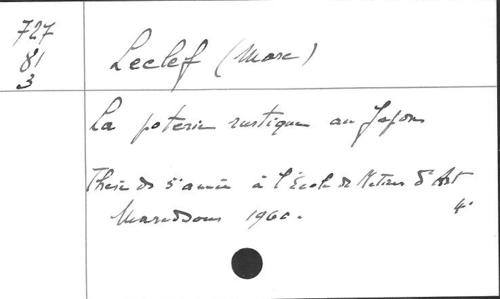 727
81
3
Leclef (Marc)
La poterie rustique au Japon
Thèse de 5e année à l'École de Métiers d'Art
Maredsous 1960.
4°